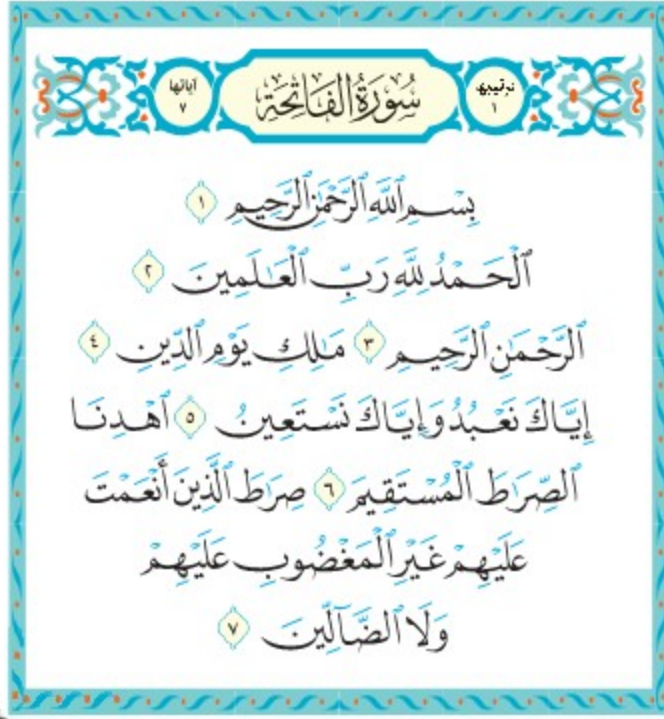 ترتيبها
١
سُورَةُ الفَاتِحَة
آياتها
٧
بِسْمِ ٱللَّهِ ٱلرَّحْمَٰنِ ٱلرَّحِيمِ ١
ٱلْحَمْدُ لِلَّهِ رَبِّ ٱلْعَٰلَمِينَ ٢
ٱلرَّحْمَٰنِ ٱلرَّحِيمِ ٣ مَٰلِكِ يَوْمِ ٱلدِّينِ ٤
إِيَّاكَ نَعْبُدُ وَإِيَّاكَ نَسْتَعِينُ ٥ ٱهْدِنَا
ٱلصِّرَٰطَ ٱلْمُسْتَقِيمَ ٦ صِرَٰطَ ٱلَّذِينَ أَنْعَمْتَ
عَلَيْهِمْ غَيْرِ ٱلْمَغْضُوبِ عَلَيْهِمْ
وَلَا ٱلضَّآلِّينَ ٧